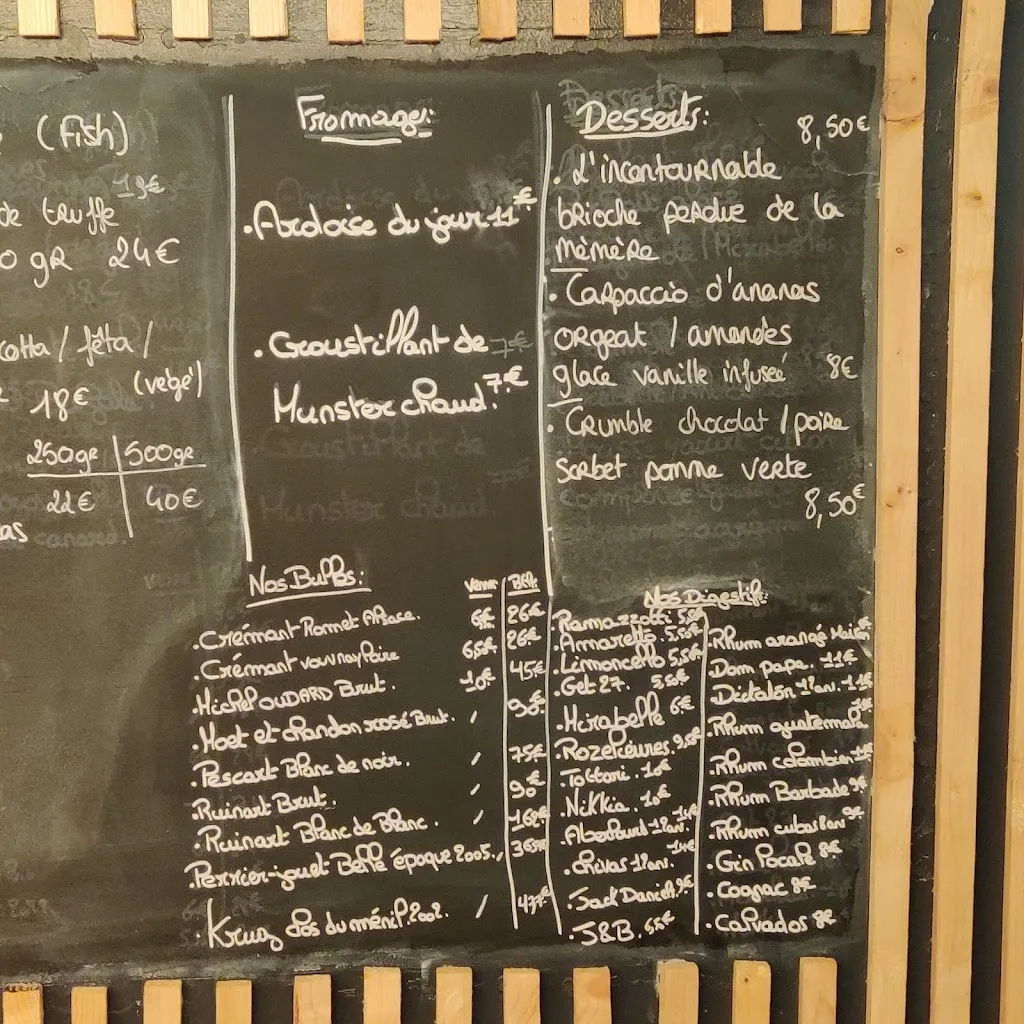 (Fish)
19€
de truffe
0 gR 24€
cotta / féta /
18€ (végé)
250gr 500gr
22€ 40€
as
Fromage:
. Ardoise du jour 11€
. Croustillant de
Munster chaud. 7€
Desserts: 8,50€
. L'incontournable
brioche perdue de la
mémère
. Carpaccio d'ananas
orgeat / amandes
glace vanille infusée 8€
. Crumble chocolat / poire
sorbet pomme verte
8,50€
Nos Bulles: Verre Btl.
. Crémant Romet Alsace. 6€ 26€
. Crémant vouvray Poire 26€
. Michel OUDARD Brut. 10€ 45€
. Moet et chandon rosé Brut. / 90€
. Pescart Blanc de noir. / 75€
. Ruinart Brut. / 90€
. Ruinart Blanc de Blanc. /
. Perrier-jouet Belle époque 2005.
. Krug clos du ménil. 2002. /
Nos Digestifs
Ramazzotti 5,50€
. Amaretto. 5,50€
. Limoncello 5,50€
. Get 27.
. Mirabelle 6€
. Rozelieures
. Tottori. 10€
. Nikkia. 10€
. Aberlour 12an.
. chivas
. Jack Daniel. 9€
. J&B.
. Rhum arangé Maison
. Dom papa. 11€
. Dictalon 12an. 11€
. Rhum guatemala
. Rhum colombien
. Rhum Barbade 9€
. Rhum cubas 8an 9€
. Gin 8€
. Cognac 8€
. Calvados 8€